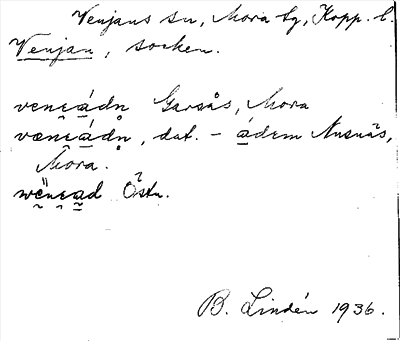 Venjans sn, Mora tg, Kopp. l.
Venjan, socken.
venɛádn̥ Garsås, Mora
vœnɛ̯ádn̥, dat. - ádem Nusnäs,
Mora.
wënɛad Östn.
B. Lindén 1936.